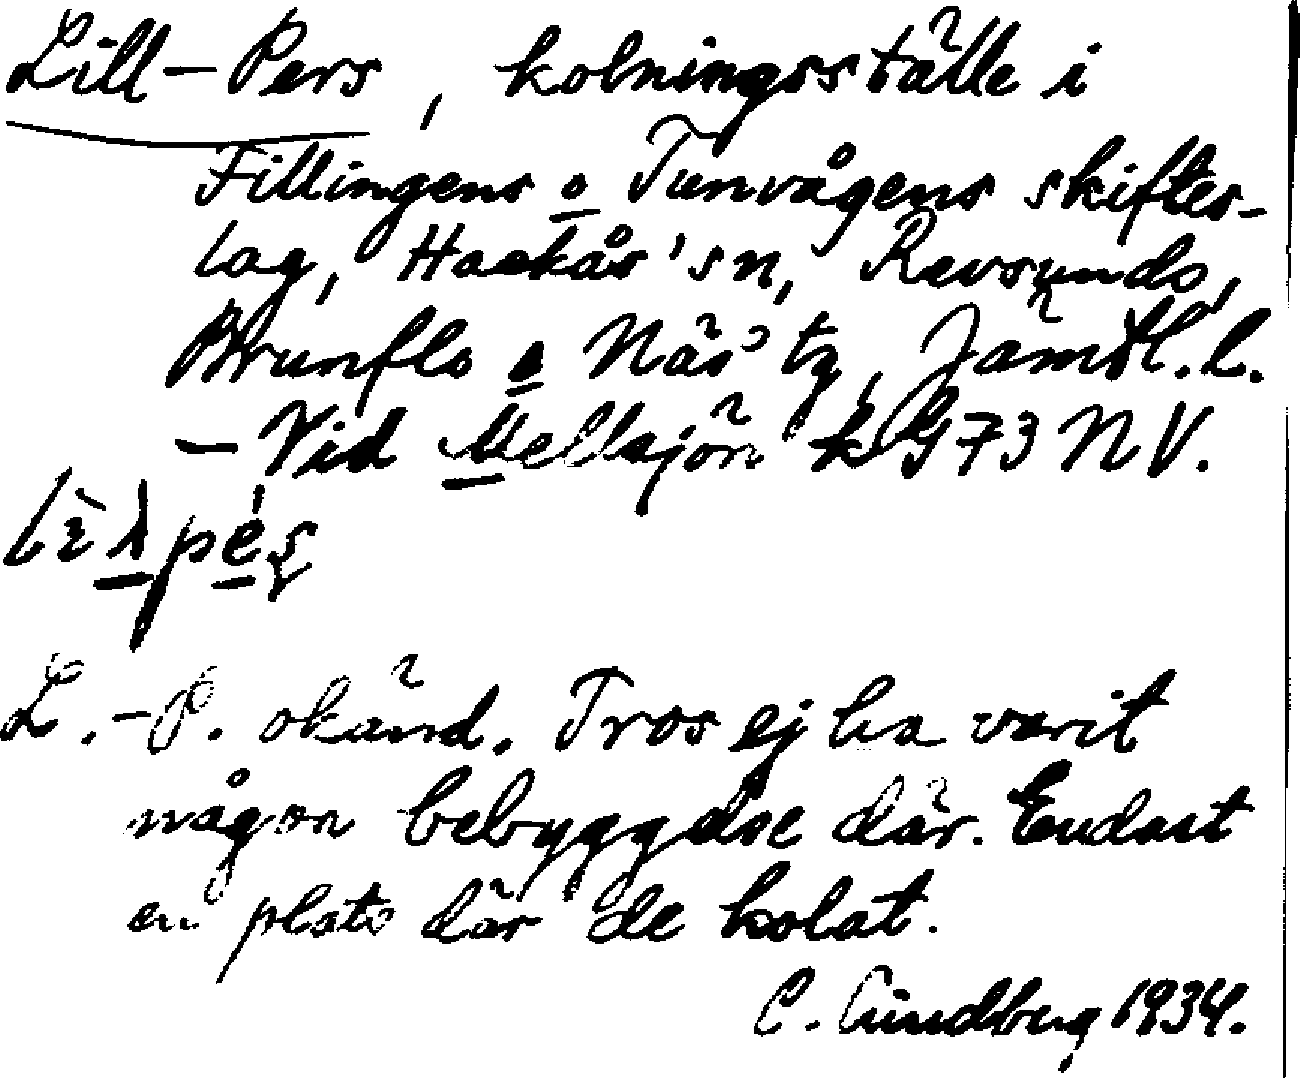 Lill-Pers, kolningsställe i
Fillingens o Tunvågens skiftes-
lag, Hackås sn, Revsunds,
Brunflo o Näs tg, Jämtl. l.
– Vid Mellsjön k G 73 N V.
L.-P. okänd. Tros ej ha varit
någon bebyggelse där. Endast
en plats där de kolat.
C. Lindberg 1934.